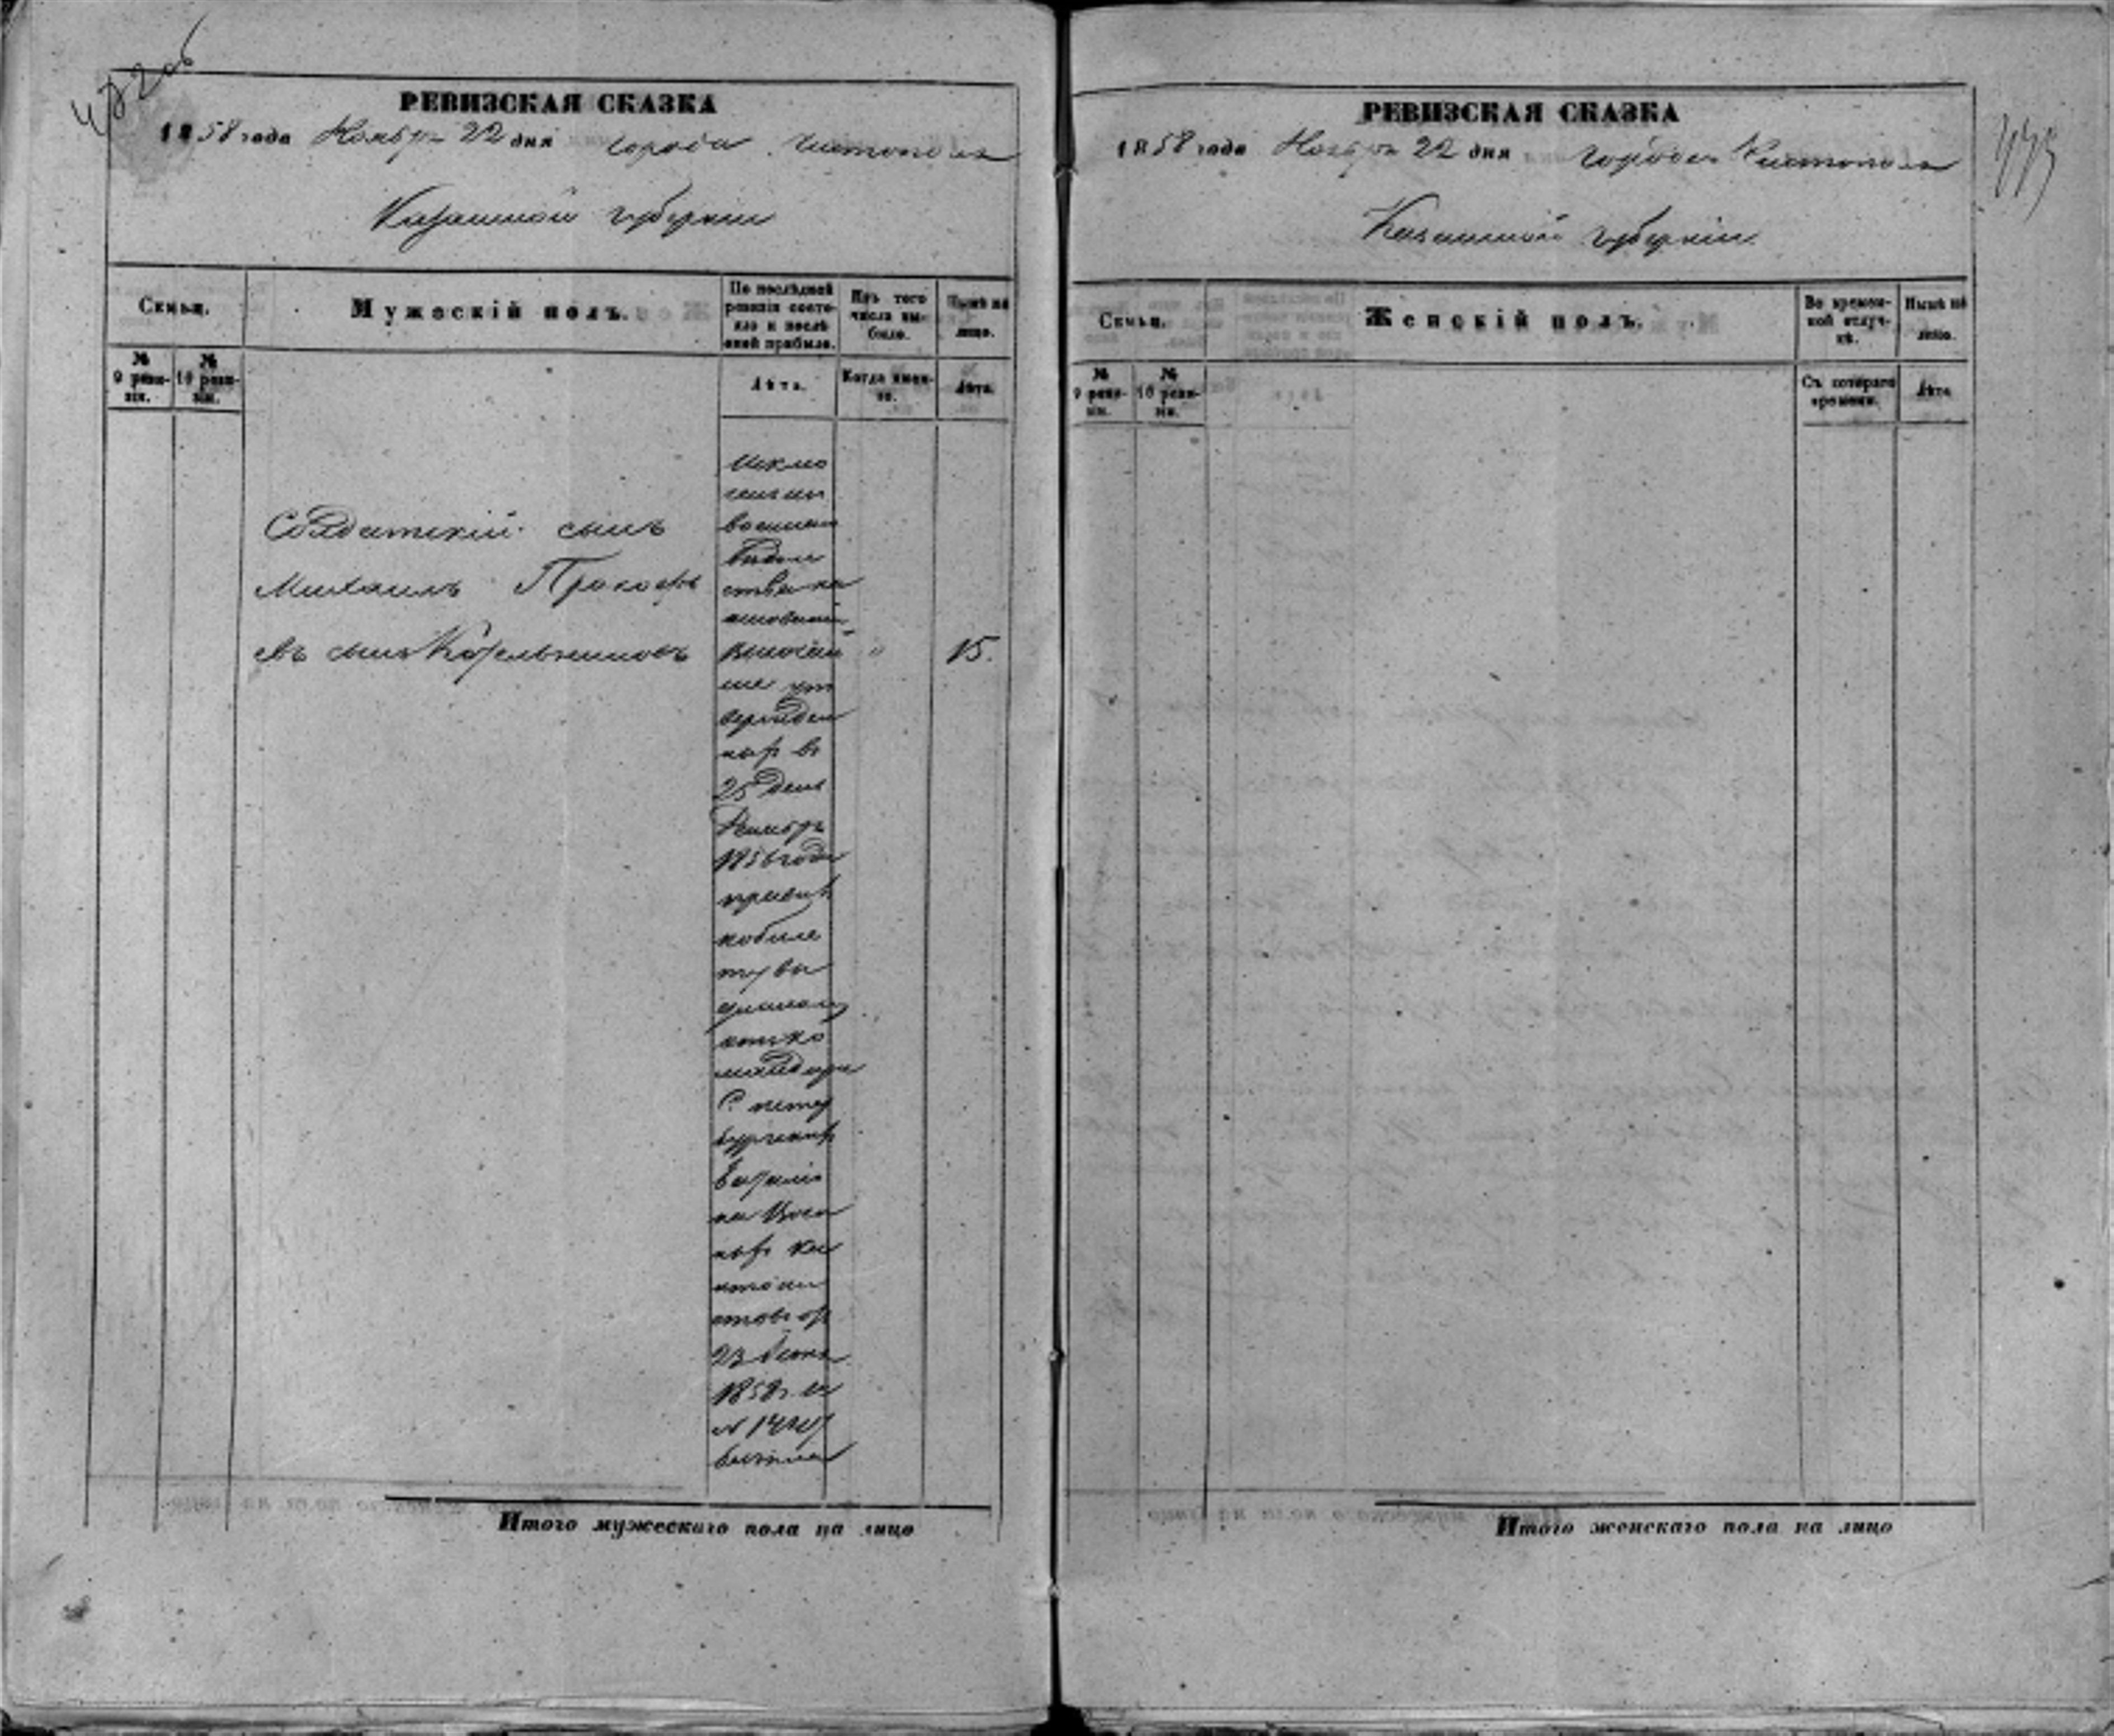 РЕВИЗСКАЯ СКАЗКА
1858 года Ноября 22 дня города Чистополя
Казанской губернии
Семьи.
Мужескій полъ.
По послѣдней ревизіи состояло и послѣ оной прибыло.
Изъ того числа выбыло.
Нынѣ на лицо.
№ 9 ревизіи.
№ 10 ревизіи.
Лѣта.
Когда именно.
Лѣта.
Солдатскій сынъ
Михаилъ Прокофь
евъ сынъ
15.
Исклю
ченъ изъ
военнаго
вѣдом
ства на
основаніи
высочай
ше ут
вержден
ныхъ въ
25 день
Декабря
1856 года
правилъ
по биле
ту вы
данному
отъ ко
мандира
С. петер
бургскихъ
баталіо
на Воен
ныхъ кан
тони
стовъ отъ
1858 г. за
Итого мужескаго пола на лицо
РЕВИЗСКАЯ СКАЗКА
1858 года Ноября 22 дня города Чистополя
Казанской губерніи
Семьи.
Женскій полъ.
Во временной отлучкѣ.
Нынѣ на лицо.
№ 9 ревизіи.
№ 10 ревизіи.
Съ котораго времени.
Лѣта.
Итого женскаго пола на лицо